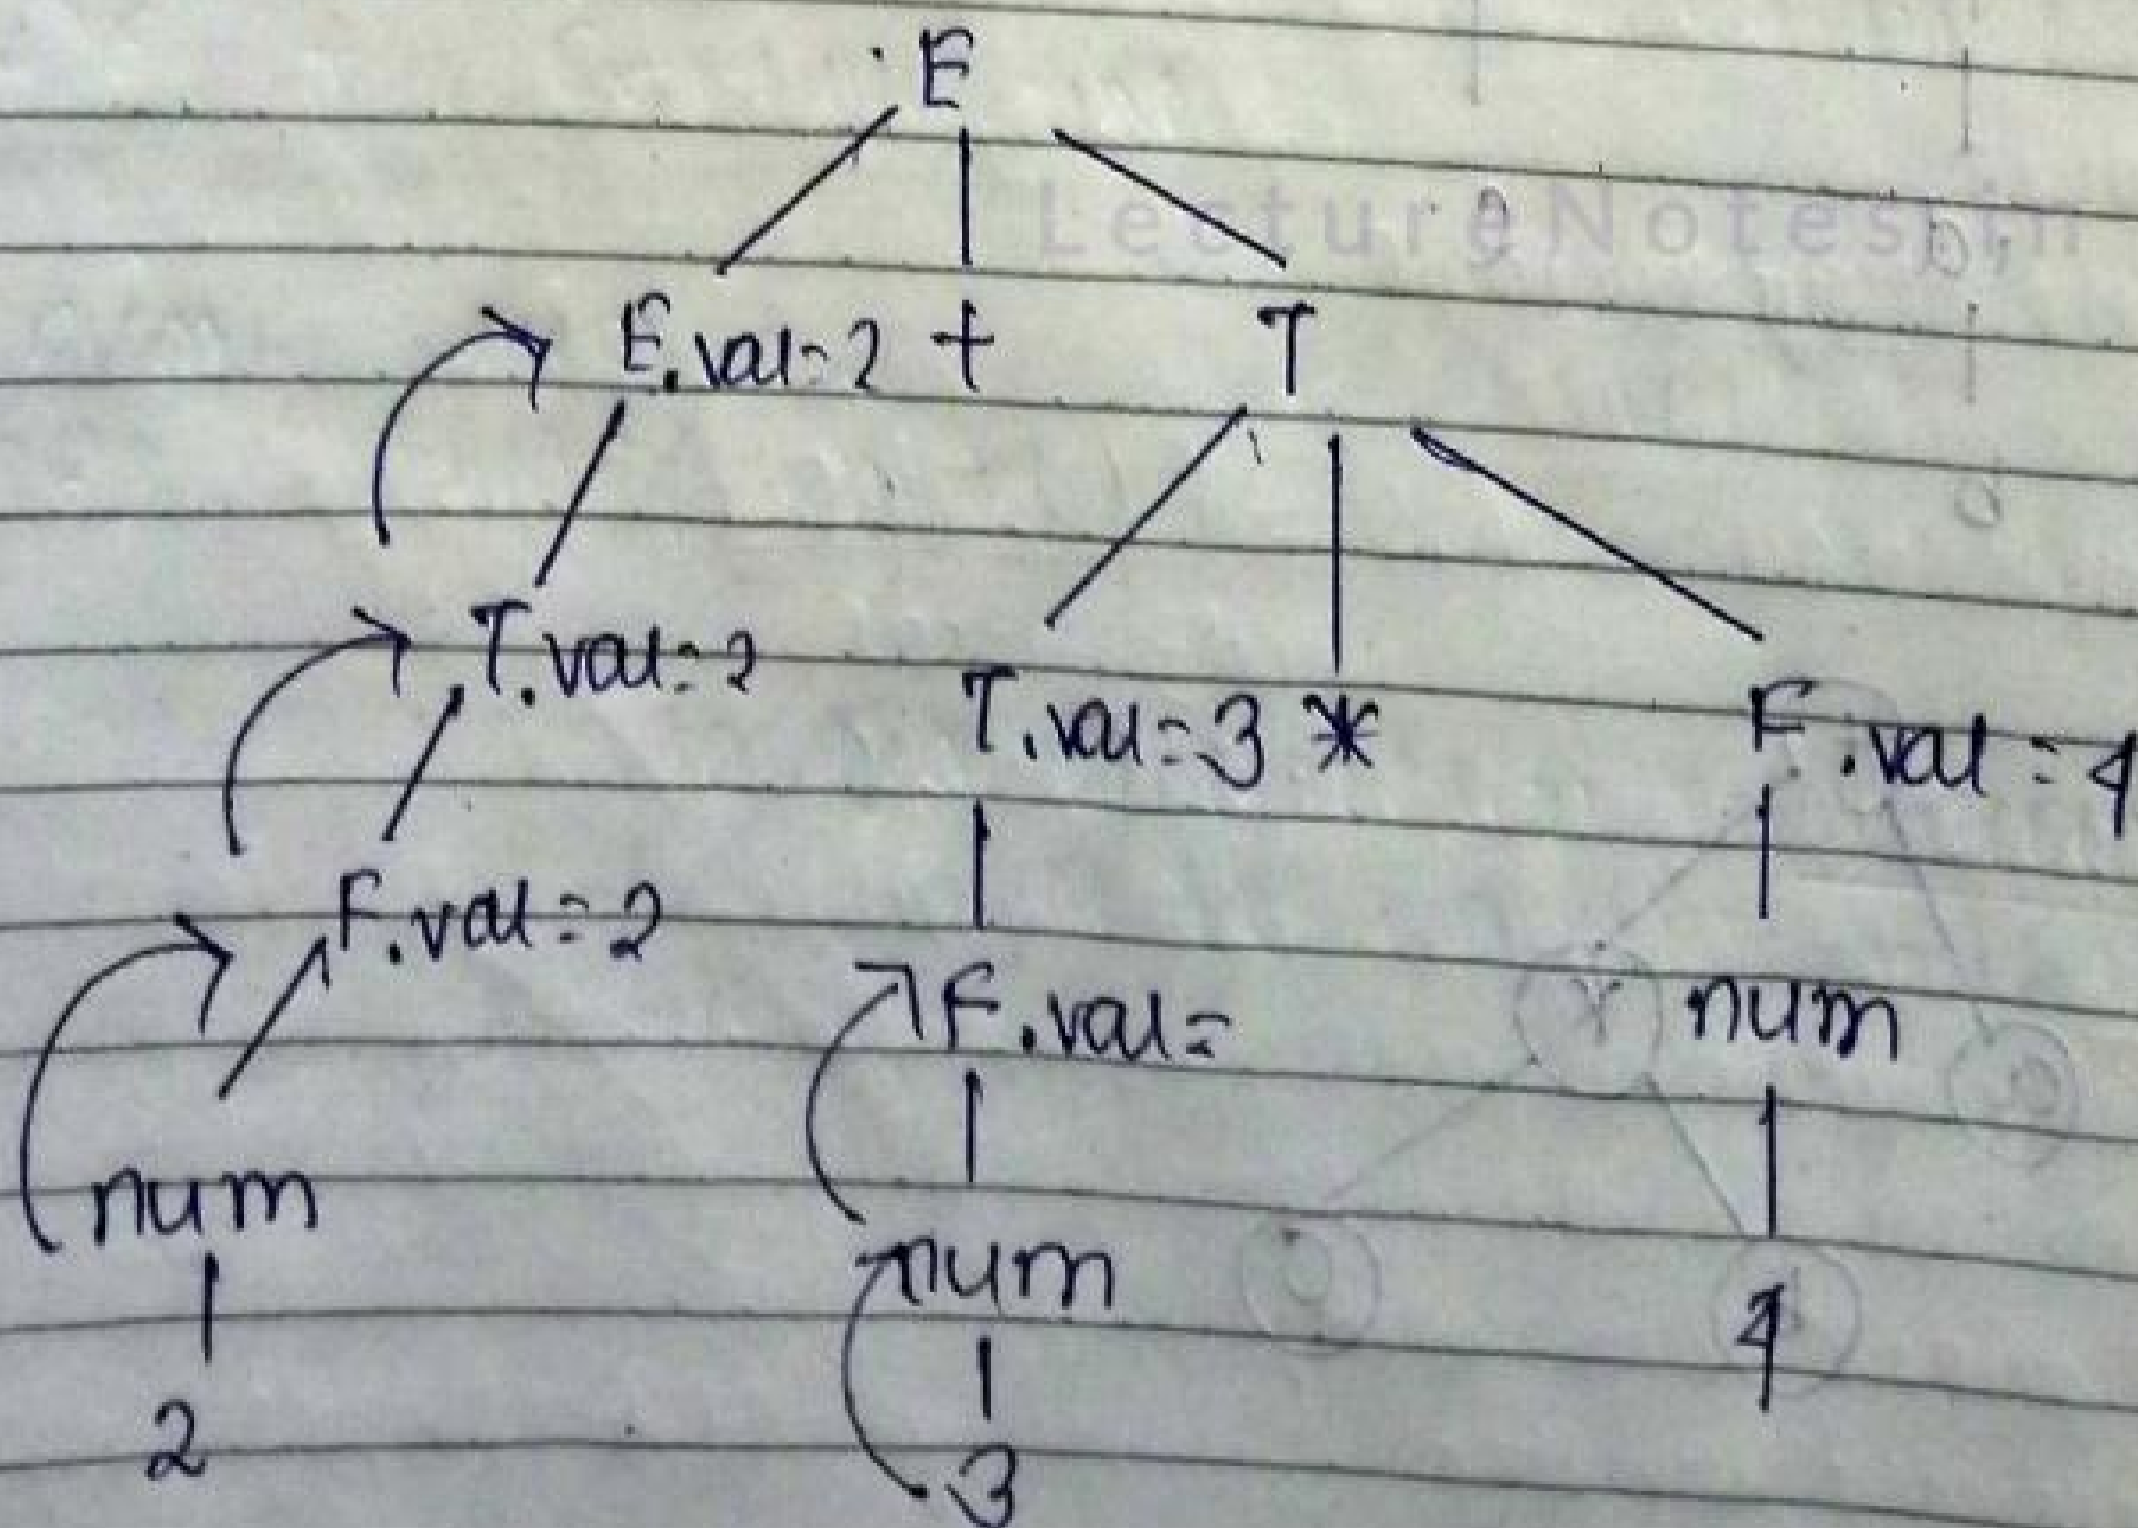 E
LectureNotes.in
E.val=2 + T
T.val=2
T.val=3 * F.val=4
F.val=2
F.val= num
num num
4
2 3